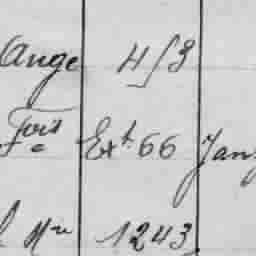 Ange 453
Fois Ext 66 Janv
Mre 1243